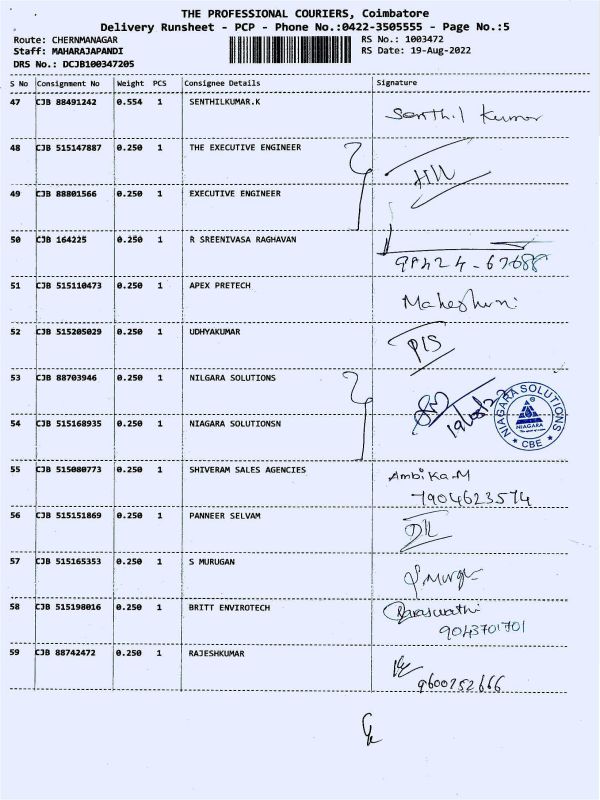 THE PROFESSIONAL COURIERS, Coimbatore
Delivery Runsheet - PCP - Phone No.:0422-3505555 - Page No.:5
Route: CHERNMANAGAR RS No.: 1003472
Staff: MAHARAJAPANDI RS Date: 19-Aug-2022
DRS No.: DCJB100347205
S No Consignment No Weight PCS Consignee Details Signature
47 CJB 88491242 0.554 1 SENTHILKUMAR.K Senthil Kumar
48 CJB 515147887 0.250 1 THE EXECUTIVE ENGINEER
49 CJB 88801566 0.250 1 EXECUTIVE ENGINEER
50 CJB 164225 0.250 1 R SREENIVASA RAGHAVAN 98424-67688
51 CJB 515110473 0.250 1 APEX PRETECH
52 CJB 515205029 0.250 1 UDHYAKUMAR
53 CJB 88703946 0.250 1 NILGARA SOLUTIONS
NIAGARA SOLUTIONS
NIAGARA
* CBE *
54 CJB 515168935 0.250 1 NIAGARA SOLUTIONSN
55 CJB 515080773 0.250 1 SHIVERAM SALES AGENCIES Ambika.M
7904623574
56 CJB 515151869 0.250 1 PANNEER SELVAM
57 CJB 515165353 0.250 1 S MURUGAN
58 CJB 515198016 0.250 1 BRITT ENVIROTECH Saraswathi
9043701701
59 CJB 88742472 0.250 1 RAJESHKUMAR
9600752666